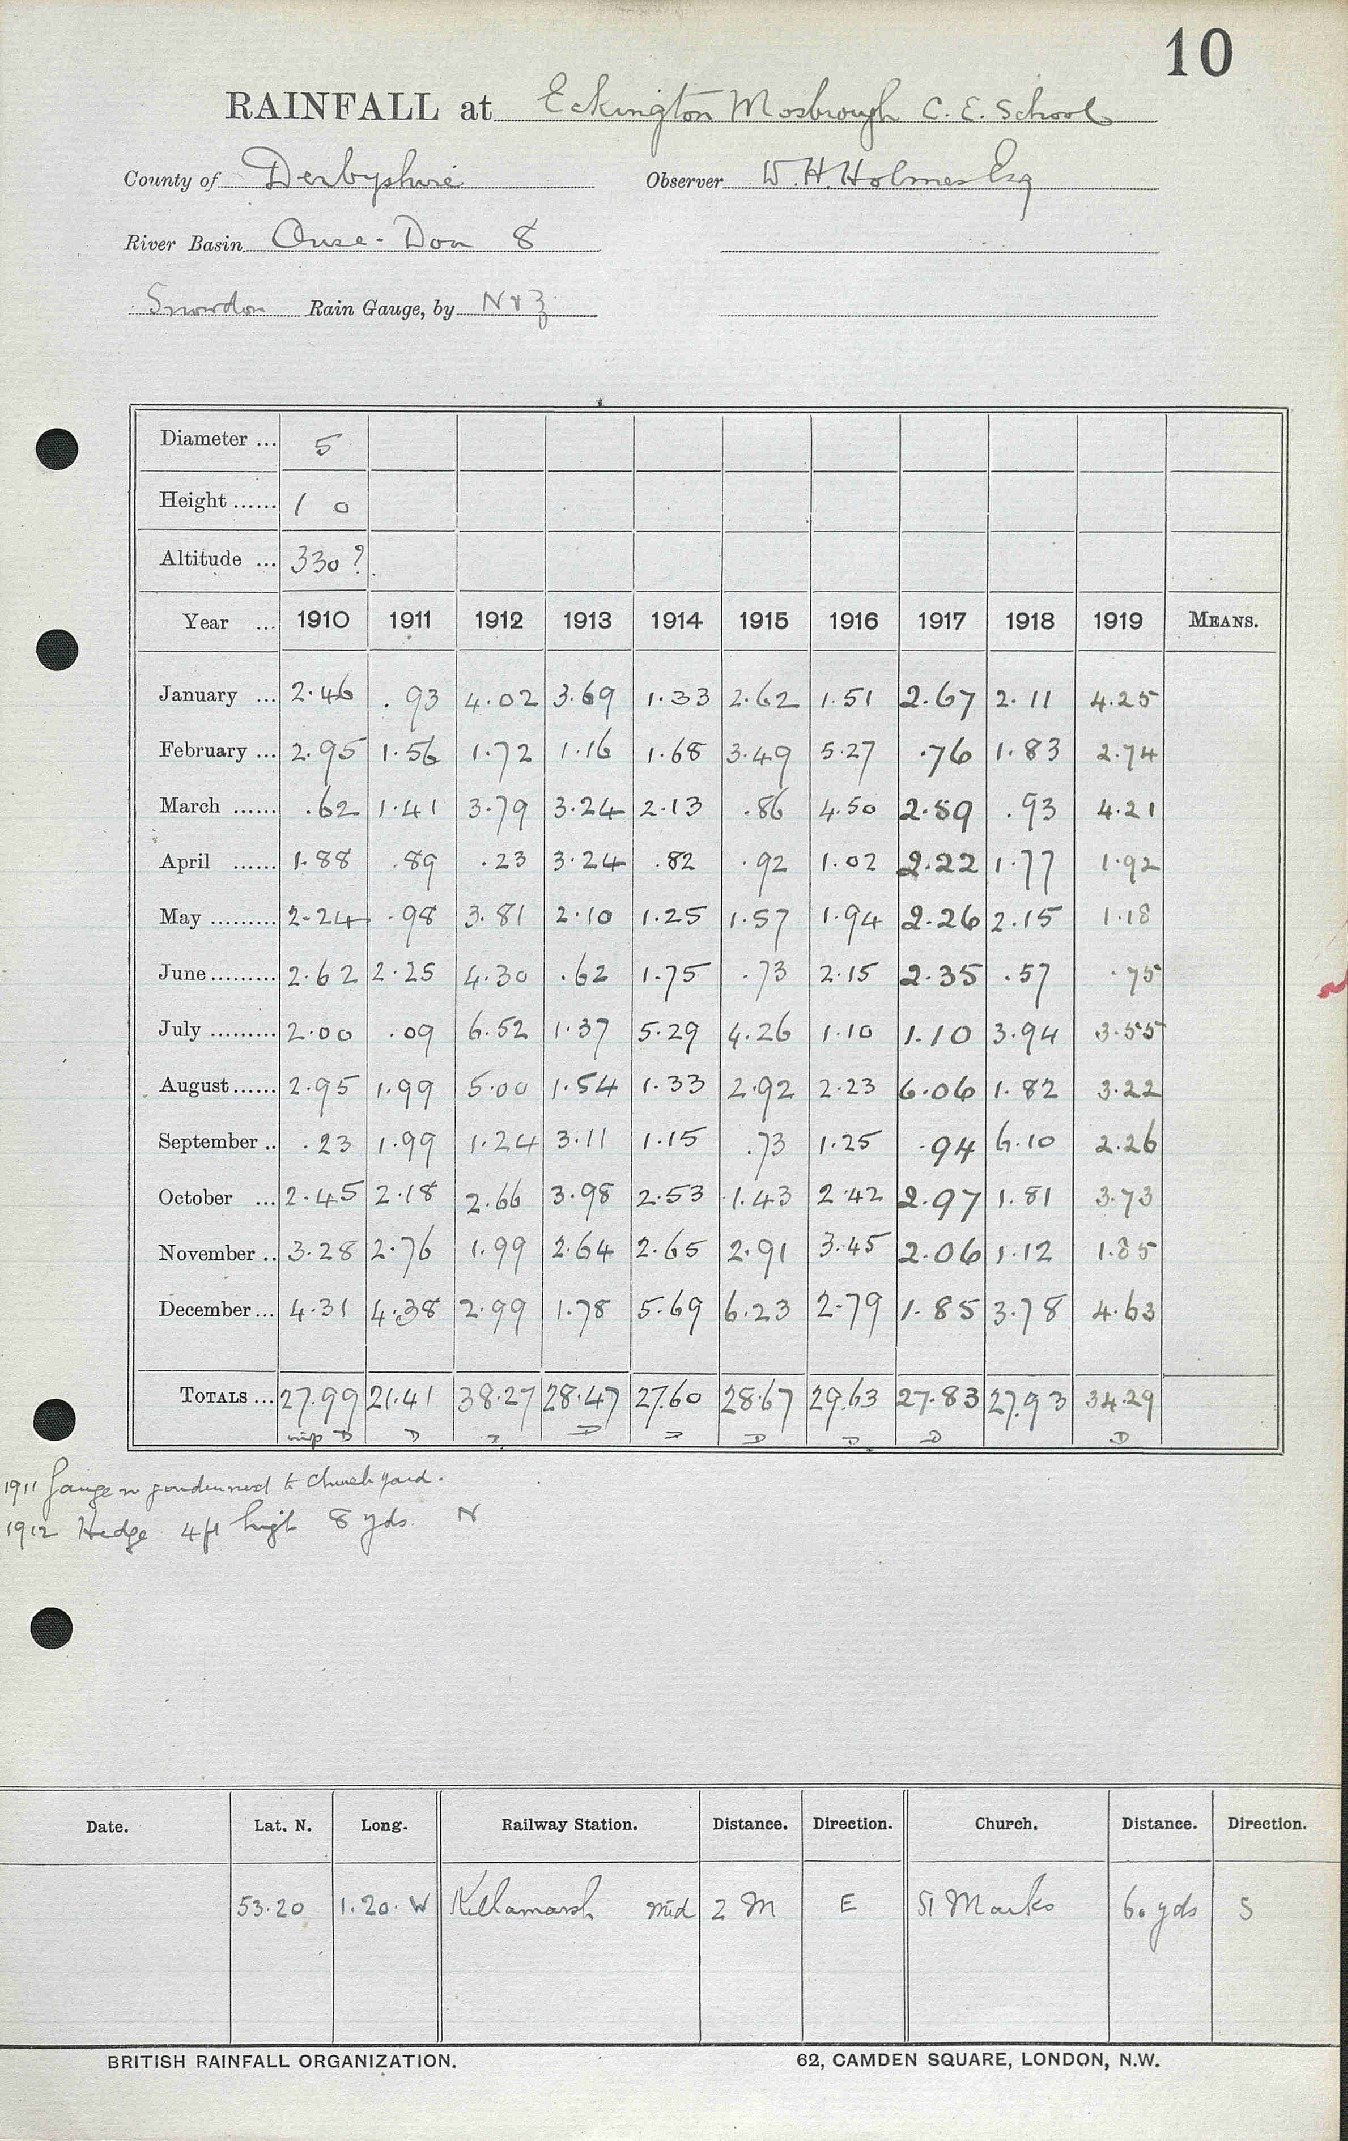 10
RAINFALL at Eckington Mosbrough C. E. School
County of Derbyshire Observer W. H. Holmes Esq
River Basin Ouse - Don 8
Snowdon Rain Gauge, by N & Z
Diameter ... 5
Height ...... 1 0
Altitude ... 330?
Year ... 1910 1911 1912 1913 1914 1915 1916 1917 1918 1919 MEANS.
January ... 2.46 .93 4.02 3.69 1.33 2.62 1.51 2.67 2.11 4.25
February ... 2.95 1.56 1.72 1.16 1.68 3.49 5.27 .76 1.83 2.74
March ...... .62 1.41 3.79 3.24 2.13 .86 4.50 2.59 .93 4.21
April ...... 1.88 .89 .23 3.24 .82 .92 1.02 2.22 1.77 1.92
May ......... 2.24 .98 3.81 2.10 1.25 1.57 1.94 2.26 2.15 1.18
June ......... 2.62 2.25 4.30 .62 1.75 .73 2.15 2.35 .57 .75
July ......... 2.00 .09 6.52 1.37 5.29 4.26 1.10 1.10 3.94 3.55
August ...... 2.95 1.99 5.00 1.54 1.33 2.92 2.23 6.06 1.82 3.22
September .. .23 1.99 1.24 3.11 1.15 .73 1.25 .94 6.10 2.26
October ... 2.45 2.18 2.66 3.98 2.53 1.43 2.42 2.97 1.81 3.73
November .. 3.28 2.76 1.99 2.64 2.65 2.91 3.45 2.06 1.12 1.85
December ... 4.31 4.38 2.99 1.78 5.69 6.23 2.79 1.85 3.78 4.63
TOTALS ... 27.99 21.41 38.27 28.47 27.60 28.67 29.63 27.83 27.93 34.29
D D D D D D
1911 Gauge in garden next to Church yard.
1912 Hedge 4 ft high 8 yds. N
Date. Lat. N. Long. Railway Station. Distance. Direction. Church. Distance. Direction.
53.20 1.20. W Killamarsh Mid 2 M E St Marks 60 yds S
BRITISH RAINFALL ORGANIZATION. 62, CAMDEN SQUARE, LONDON, N.W.